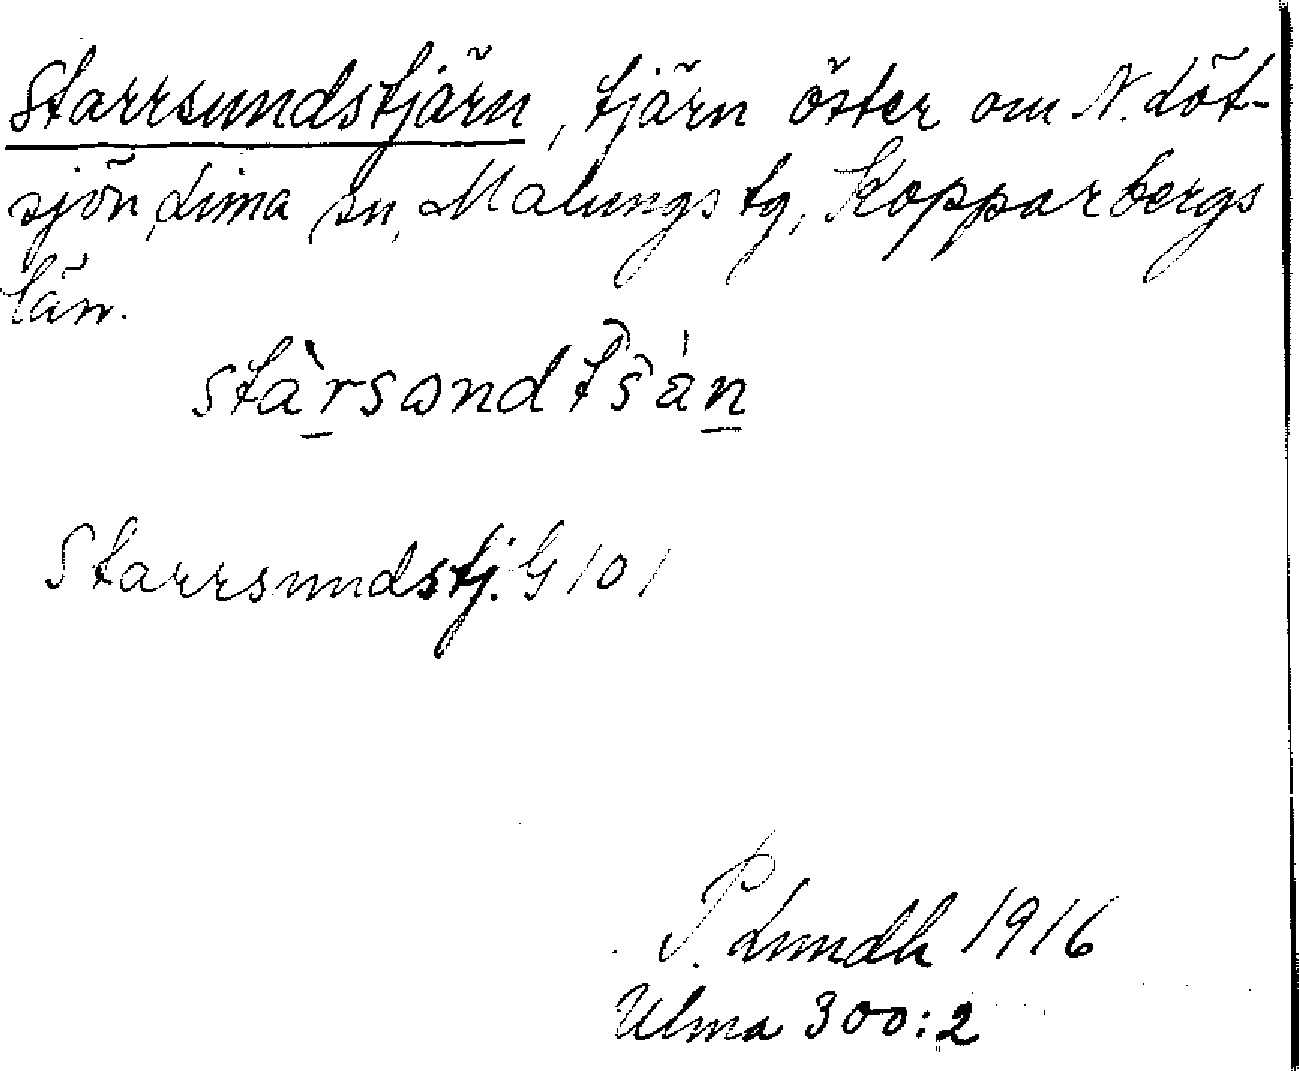 Starrsundstjärn, tjärn öster om N. Löt-
sjön, Lima sn, Malungs tg, Kopparbergs
län.
stàrsɷndt̑s̑án
Starrsundstj. G 101
P. Lundh 1916
Ulma 300:2